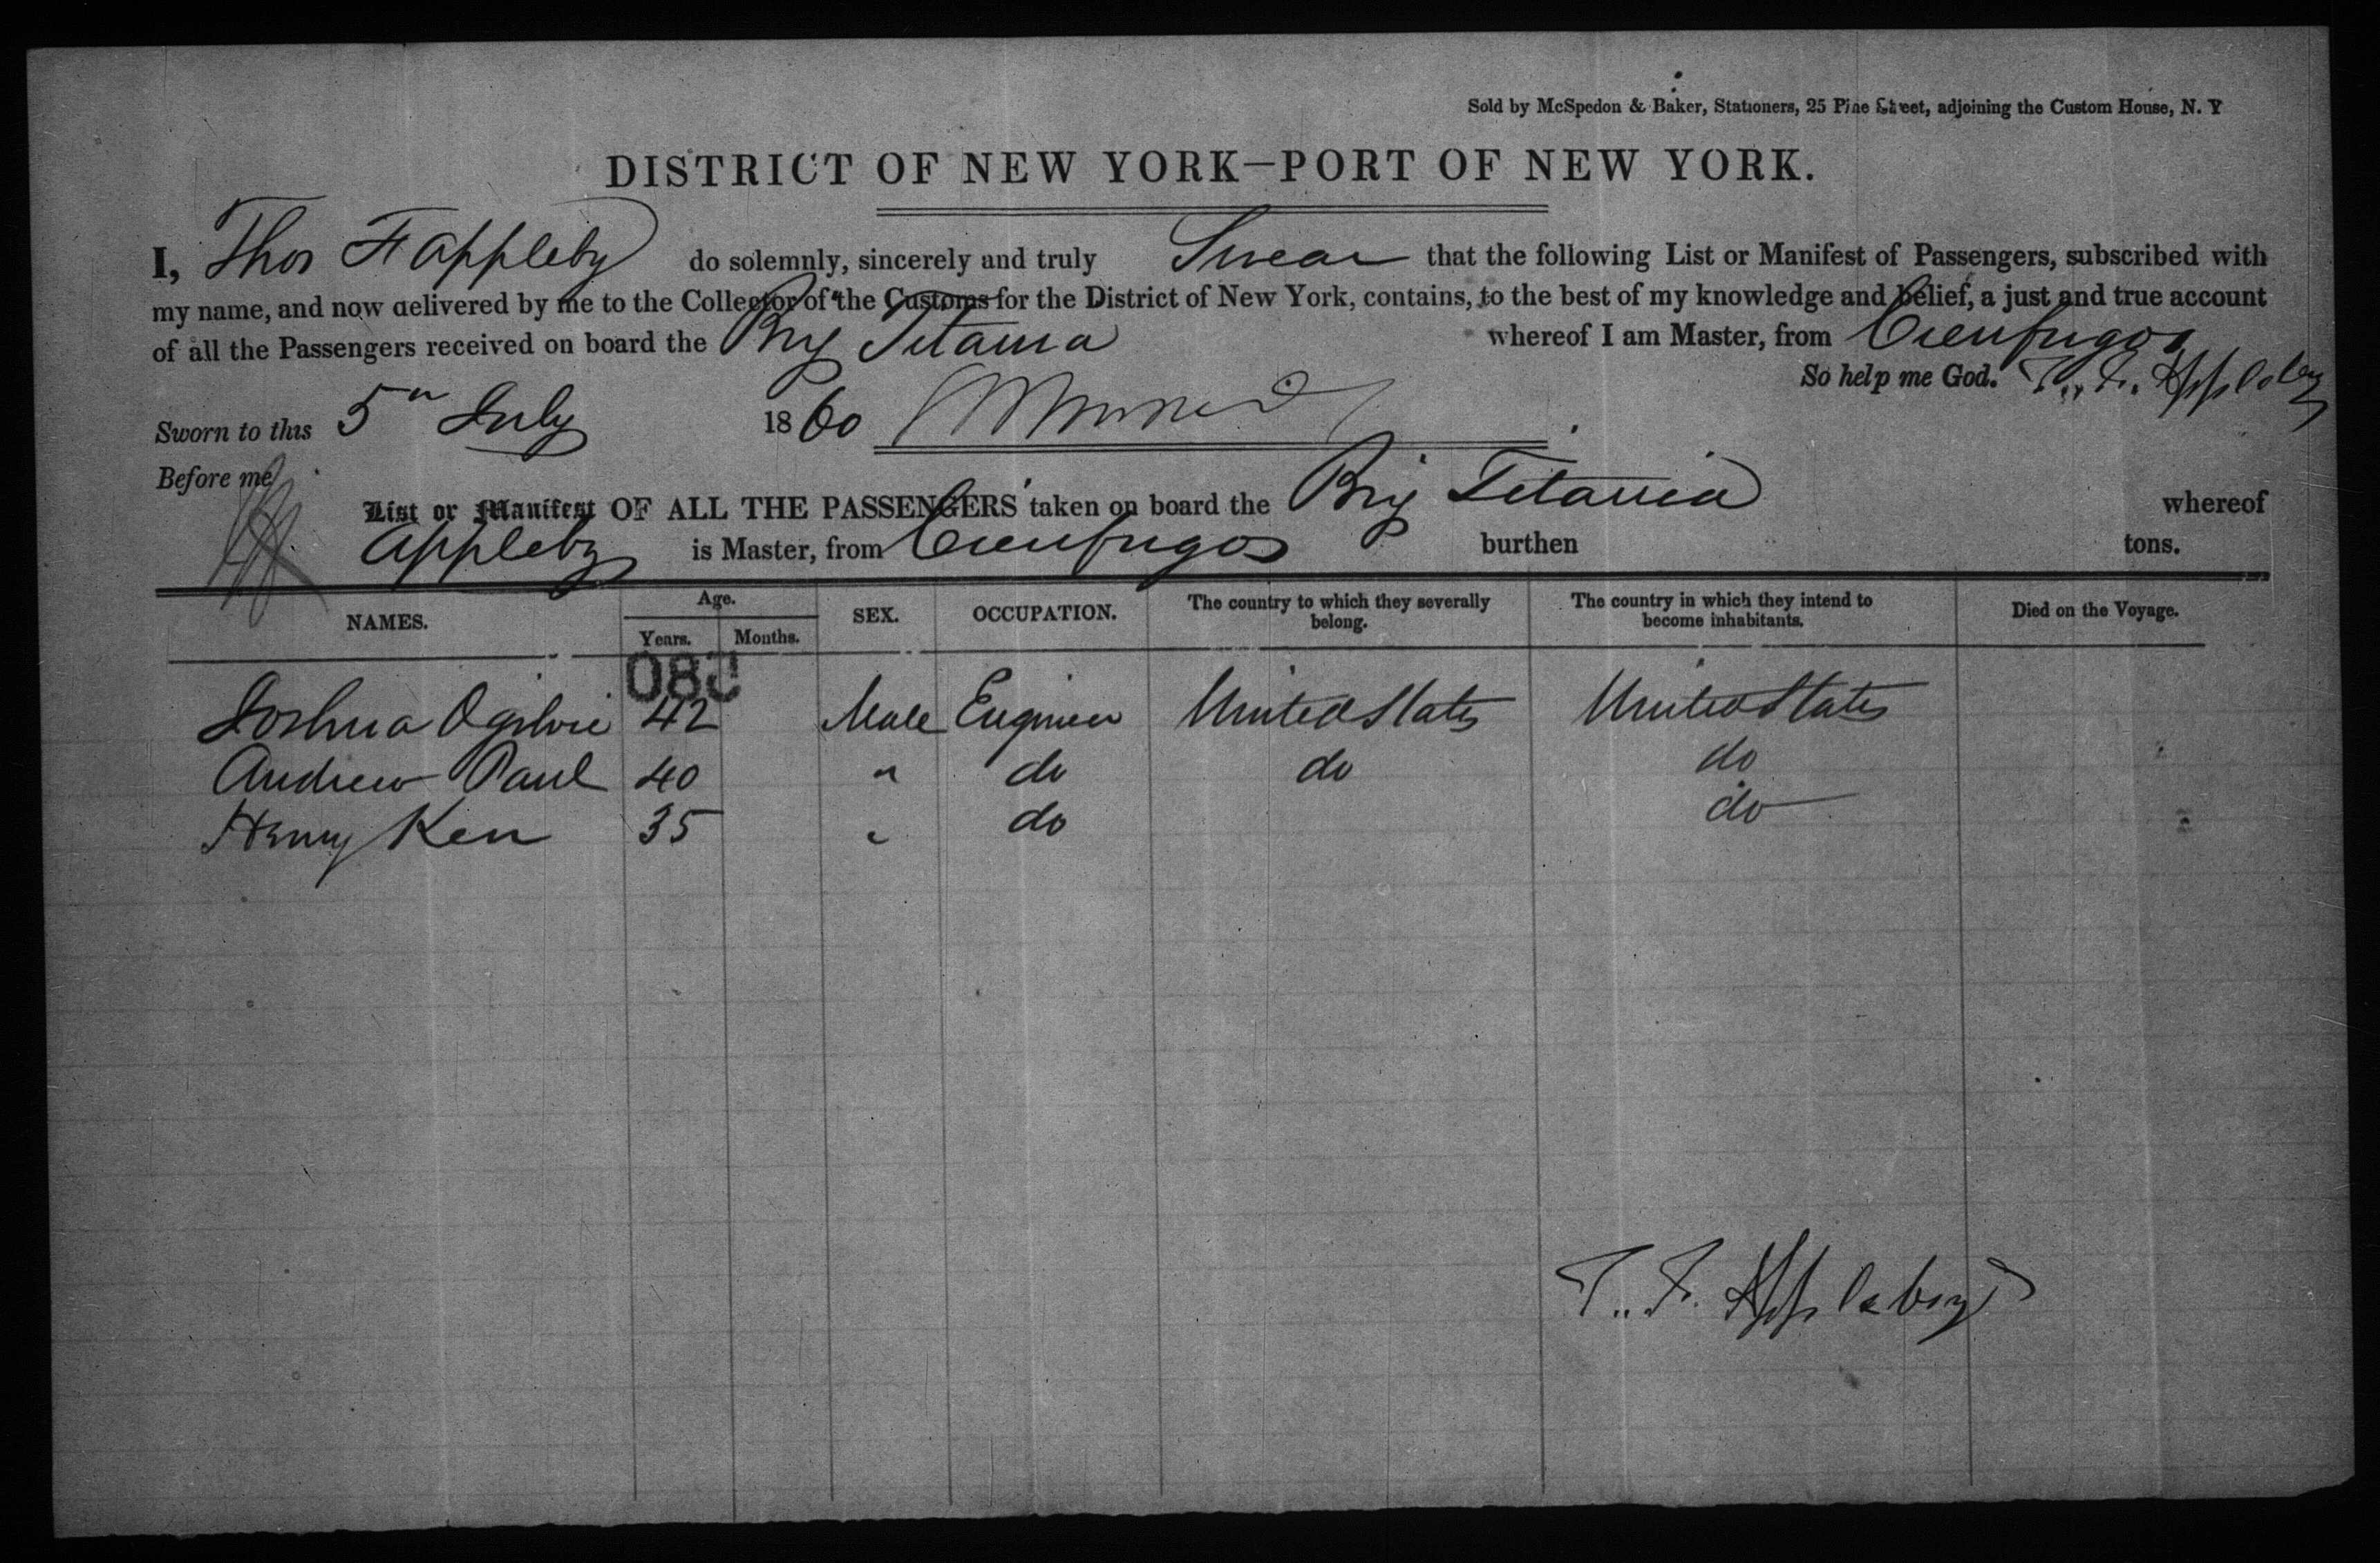 Sold by McSpedon & Baker, Stationers, 25 Pine Street, adjoining the Custom House, N. Y
DISTRICT OF NEW YORK—PORT OF NEW YORK.
I, Thos F Appleby do solemnly, sincerely and truly Swear that the following List or Manifest of Passengers, subscribed with
my name, and now delivered by me to the Collector of the Customs for the District of New York, contains, to the best of my knowledge and belief, a just and true account
of all the Passengers received on board the Brig Titania whereof I am Master, from Cienfugos
So help me God. T. F. Appleby
Sworn to this 5th July 1860
Before me
List or Manifest OF ALL THE PASSENGERS taken on board the Brig Titania whereof
Appleby is Master, from Cienfugos burthen tons.
NAMES. Age. Years. Months. SEX. OCCUPATION. The country to which they severally belong. The country in which they intend to become inhabitants. Died on the Voyage.
080
Joshua Ogilvie 42 Male Engineer United States United States
Andrew Paul 40 " do do do
Henry Ken 35 " do do
T. F. Appleby